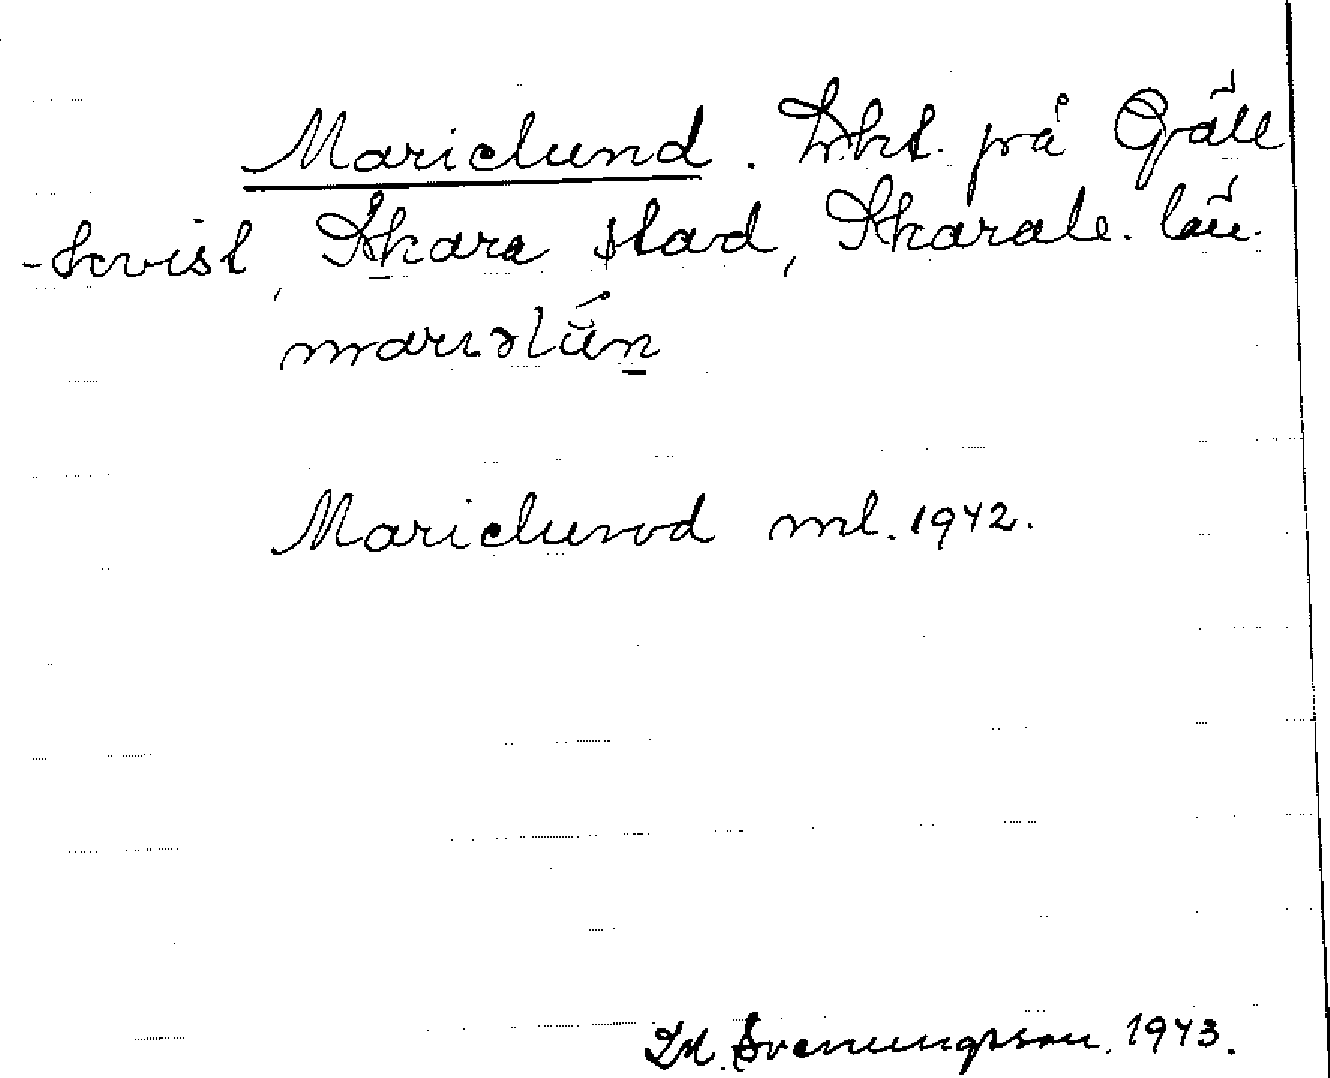 Marielund. Lht. på Gäll
-kvist, Skara stad, Skarab. län.
Marielund ml. 1942.
Id. Svenungsson. 1943.